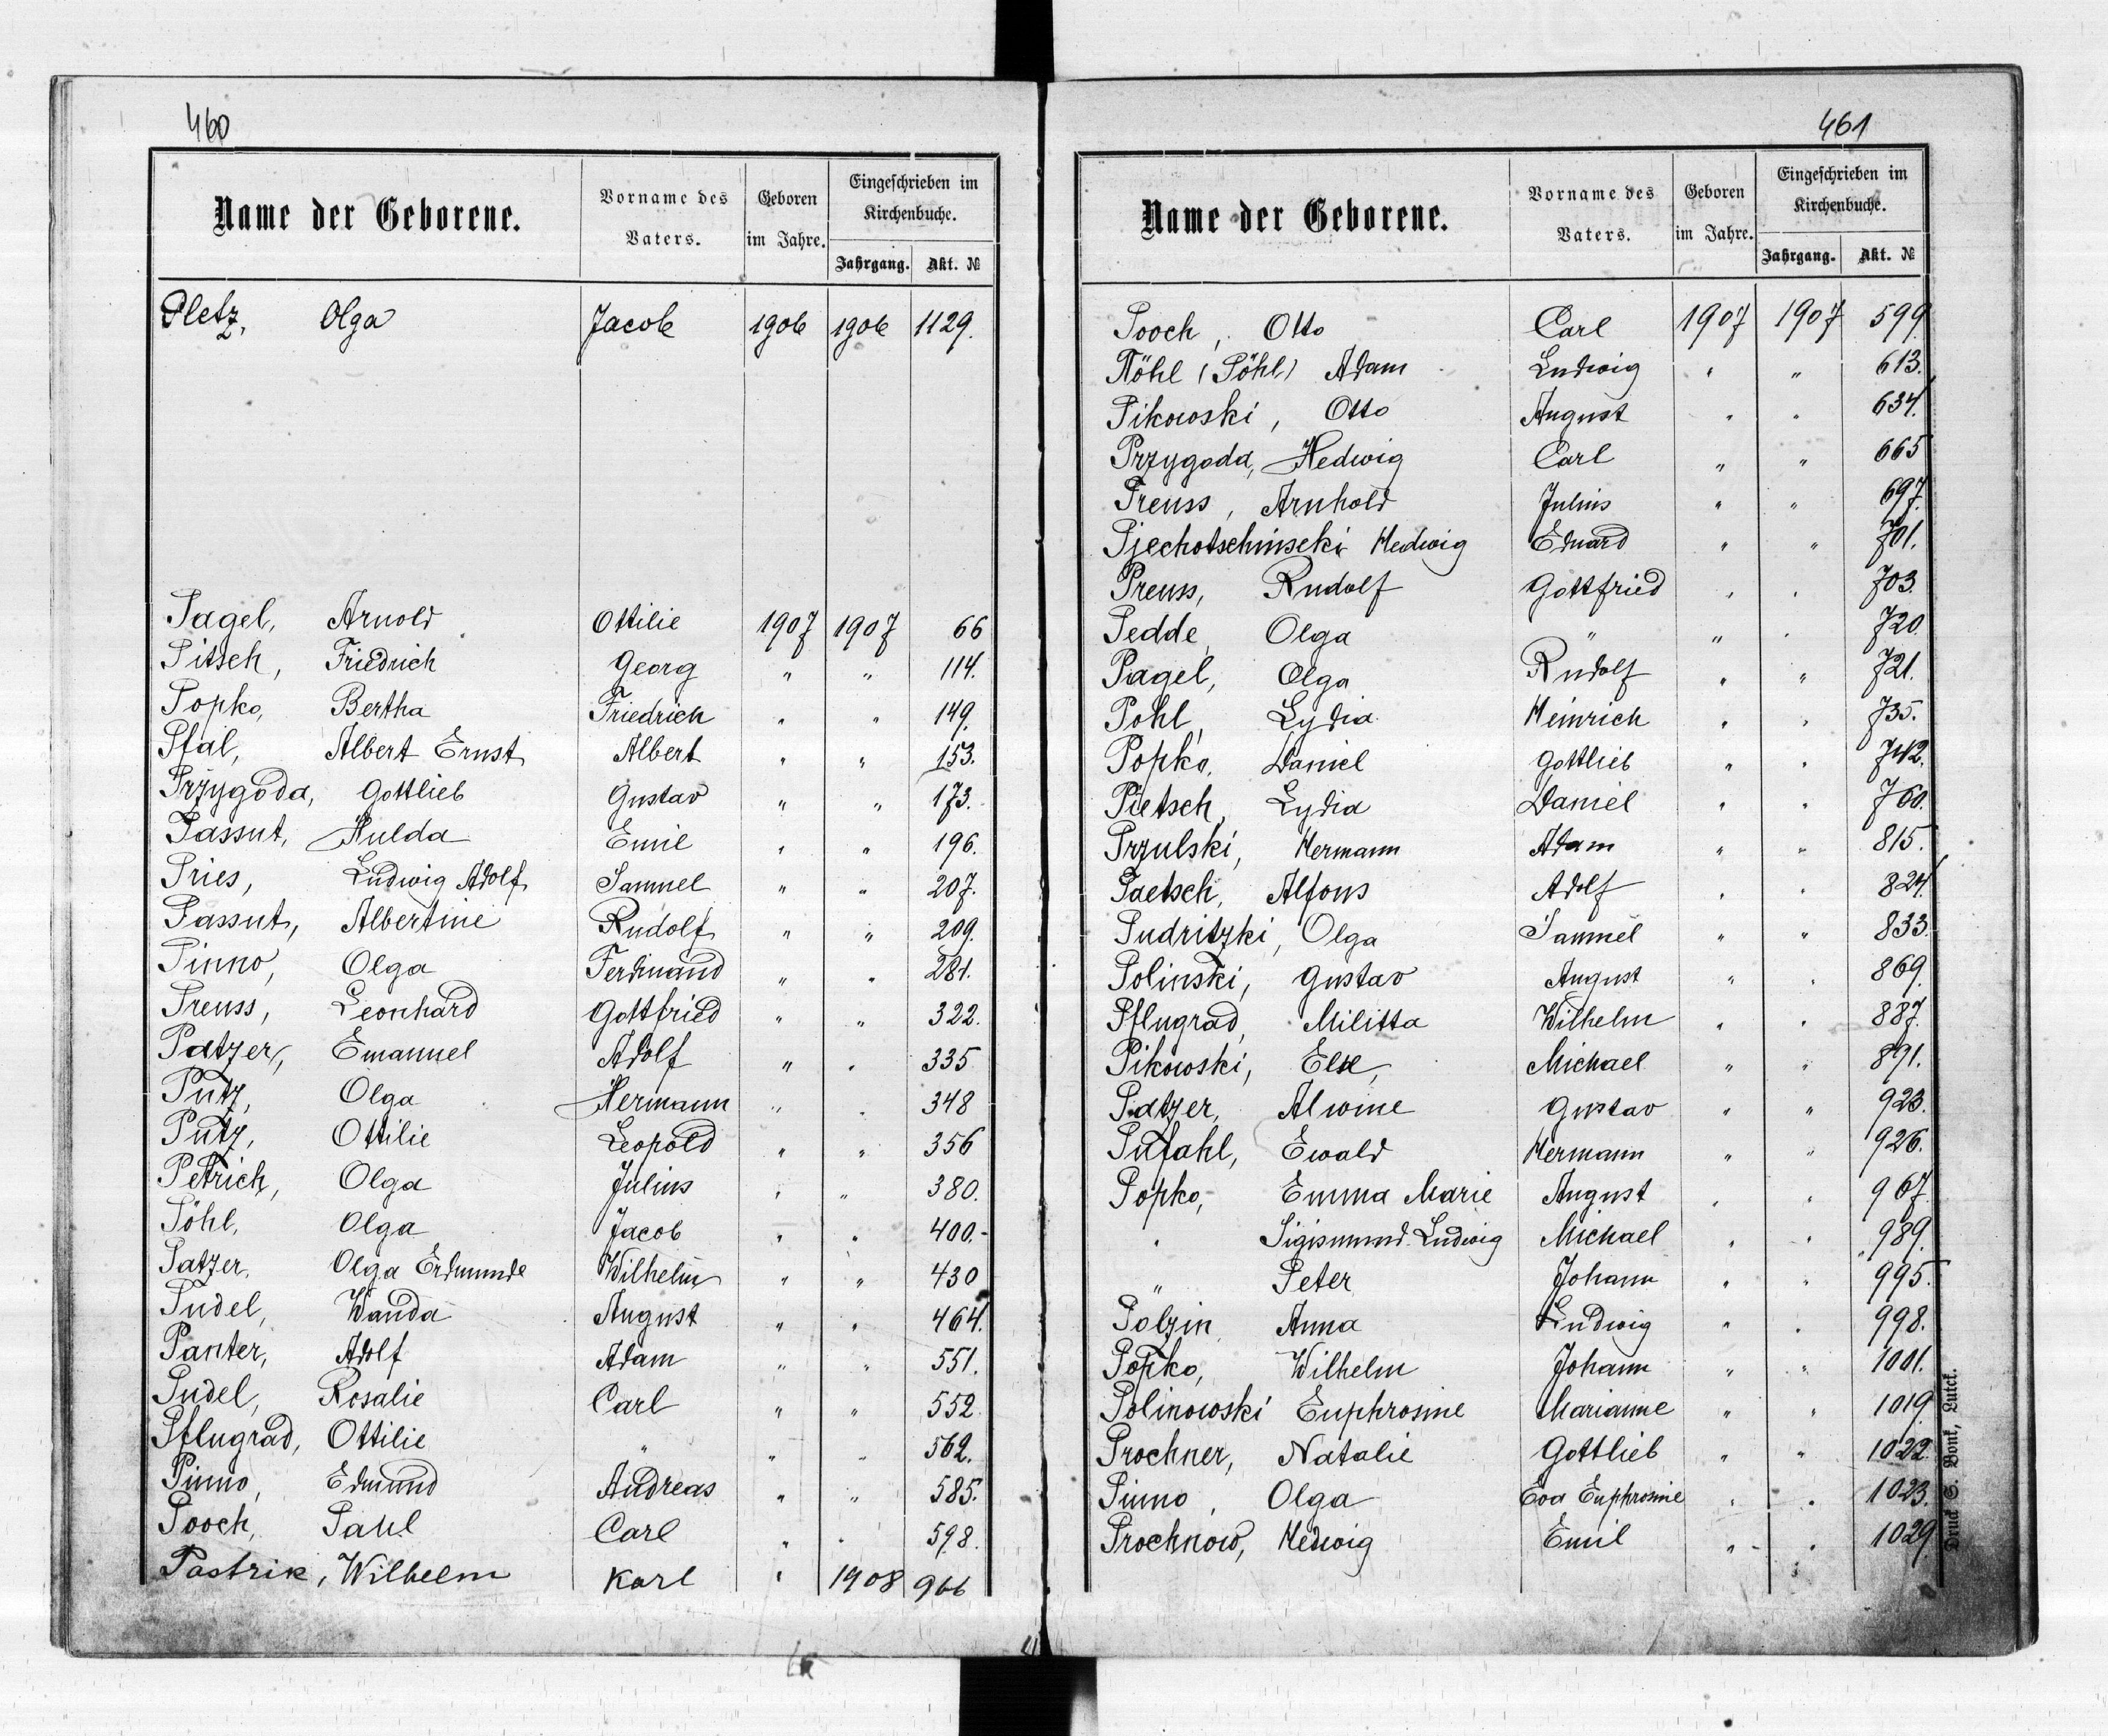 460
Name der Geborene. Vorname des Vaters. Geboren im Jahre. Eingeschrieben im Kirchenbuche. Jahrgang. Akt. №
Pletz, Olga Jacob 1906 1906 1129.
Pagel, Arnold Ottilie 1907 1907 66
Pitsch, Friedrich Georg " " 114.
Popko, Bertha Friedrich " " 149.
Pfal, Albert Ernst Albert " " 153.
Przygoda, Gottlieb Gustav " " 173.
Passut, Hulda Emil " " 196.
Pries, Ludwig Adolf Samuel " " 207.
Passut, Albertine Rudolf " " 209.
Pinno, Olga Ferdinand " " 281.
Preuss, Leonhard Gottfried " " 322.
Patzer, Emanuel Adolf " " 335
Putz, Olga Hermann " " 348
Putz, Ottilie Leopold " " 356
Petrich, Olga Julius " " 380.
Pöhl, Olga Jacob " " 400.-
Patzer, Olga Erdmunde Wilhelm " " 430
Pudel, Wanda August " " 464.
Panter, Adolf Adam " " 551.
Pudel, Rosalie Carl " " 552
Pflugrad, Ottilie " " " 562.
Pinno, Edmund Andreas " " 585.
Pooch, Paul Carl " " 598.
Pastrik, Wilhelm Karl " 1908 966
461
Name der Geborene. Vorname des Vaters. Geboren im Jahre. Eingeschrieben im Kirchenbuche. Jahrgang. Akt. №
Pooch, Otto Carl 1907 1907 599
Nöhl (Pöhl) Adam Ludwig " " 613.
Pikowski, Otto August " " 634.
Przygoda, Hedwig Carl " " 665
Preuss, Arnhold Julius " " 697.
Pjechotschinseki Hedwig Eduard " " 701.
Preuss, Rudolf Gottfried " " 703.
Pedde, Olga " " " 720.
Pagel, Olga Rudolf " " 721.
Pohl, Lydia Heinrich " " 735.
Popko, Daniel Gottlieb " " 742.
Pietsch, Lydia Daniel " " 760.
Przulski, Hermann Adam " " 815.
Paetsch, Alfons Adolf " " 824.
Pudritzki, Olga Samuel " " 833.
Polinski, Gustav August " " 869.
Pflugrad, Militta Wilhelm " " 887.
Pikowski, Else, Michael " " 891.
Patzer, Alwine Gustav " " 923.
Pufahl, Ewald Hermann " " 926.
Popko, Emma Marie August " " 967
" Sigismund Ludwig Michael " " 989.
" Peter Johann " " 995.
Polzin Anna Ludwig " " 998.
Popko, Wilhelm Johann " " 1001.
Polinowski Euphrosine Marianne " " 1019
Prochner, Natalie Gottlieb " " 1022
Pinno, Olga Eva Euphrosine " " 1023.
Prochnow, Hedwig Emil " " 1029
Druck S. Bonk, Lutck.